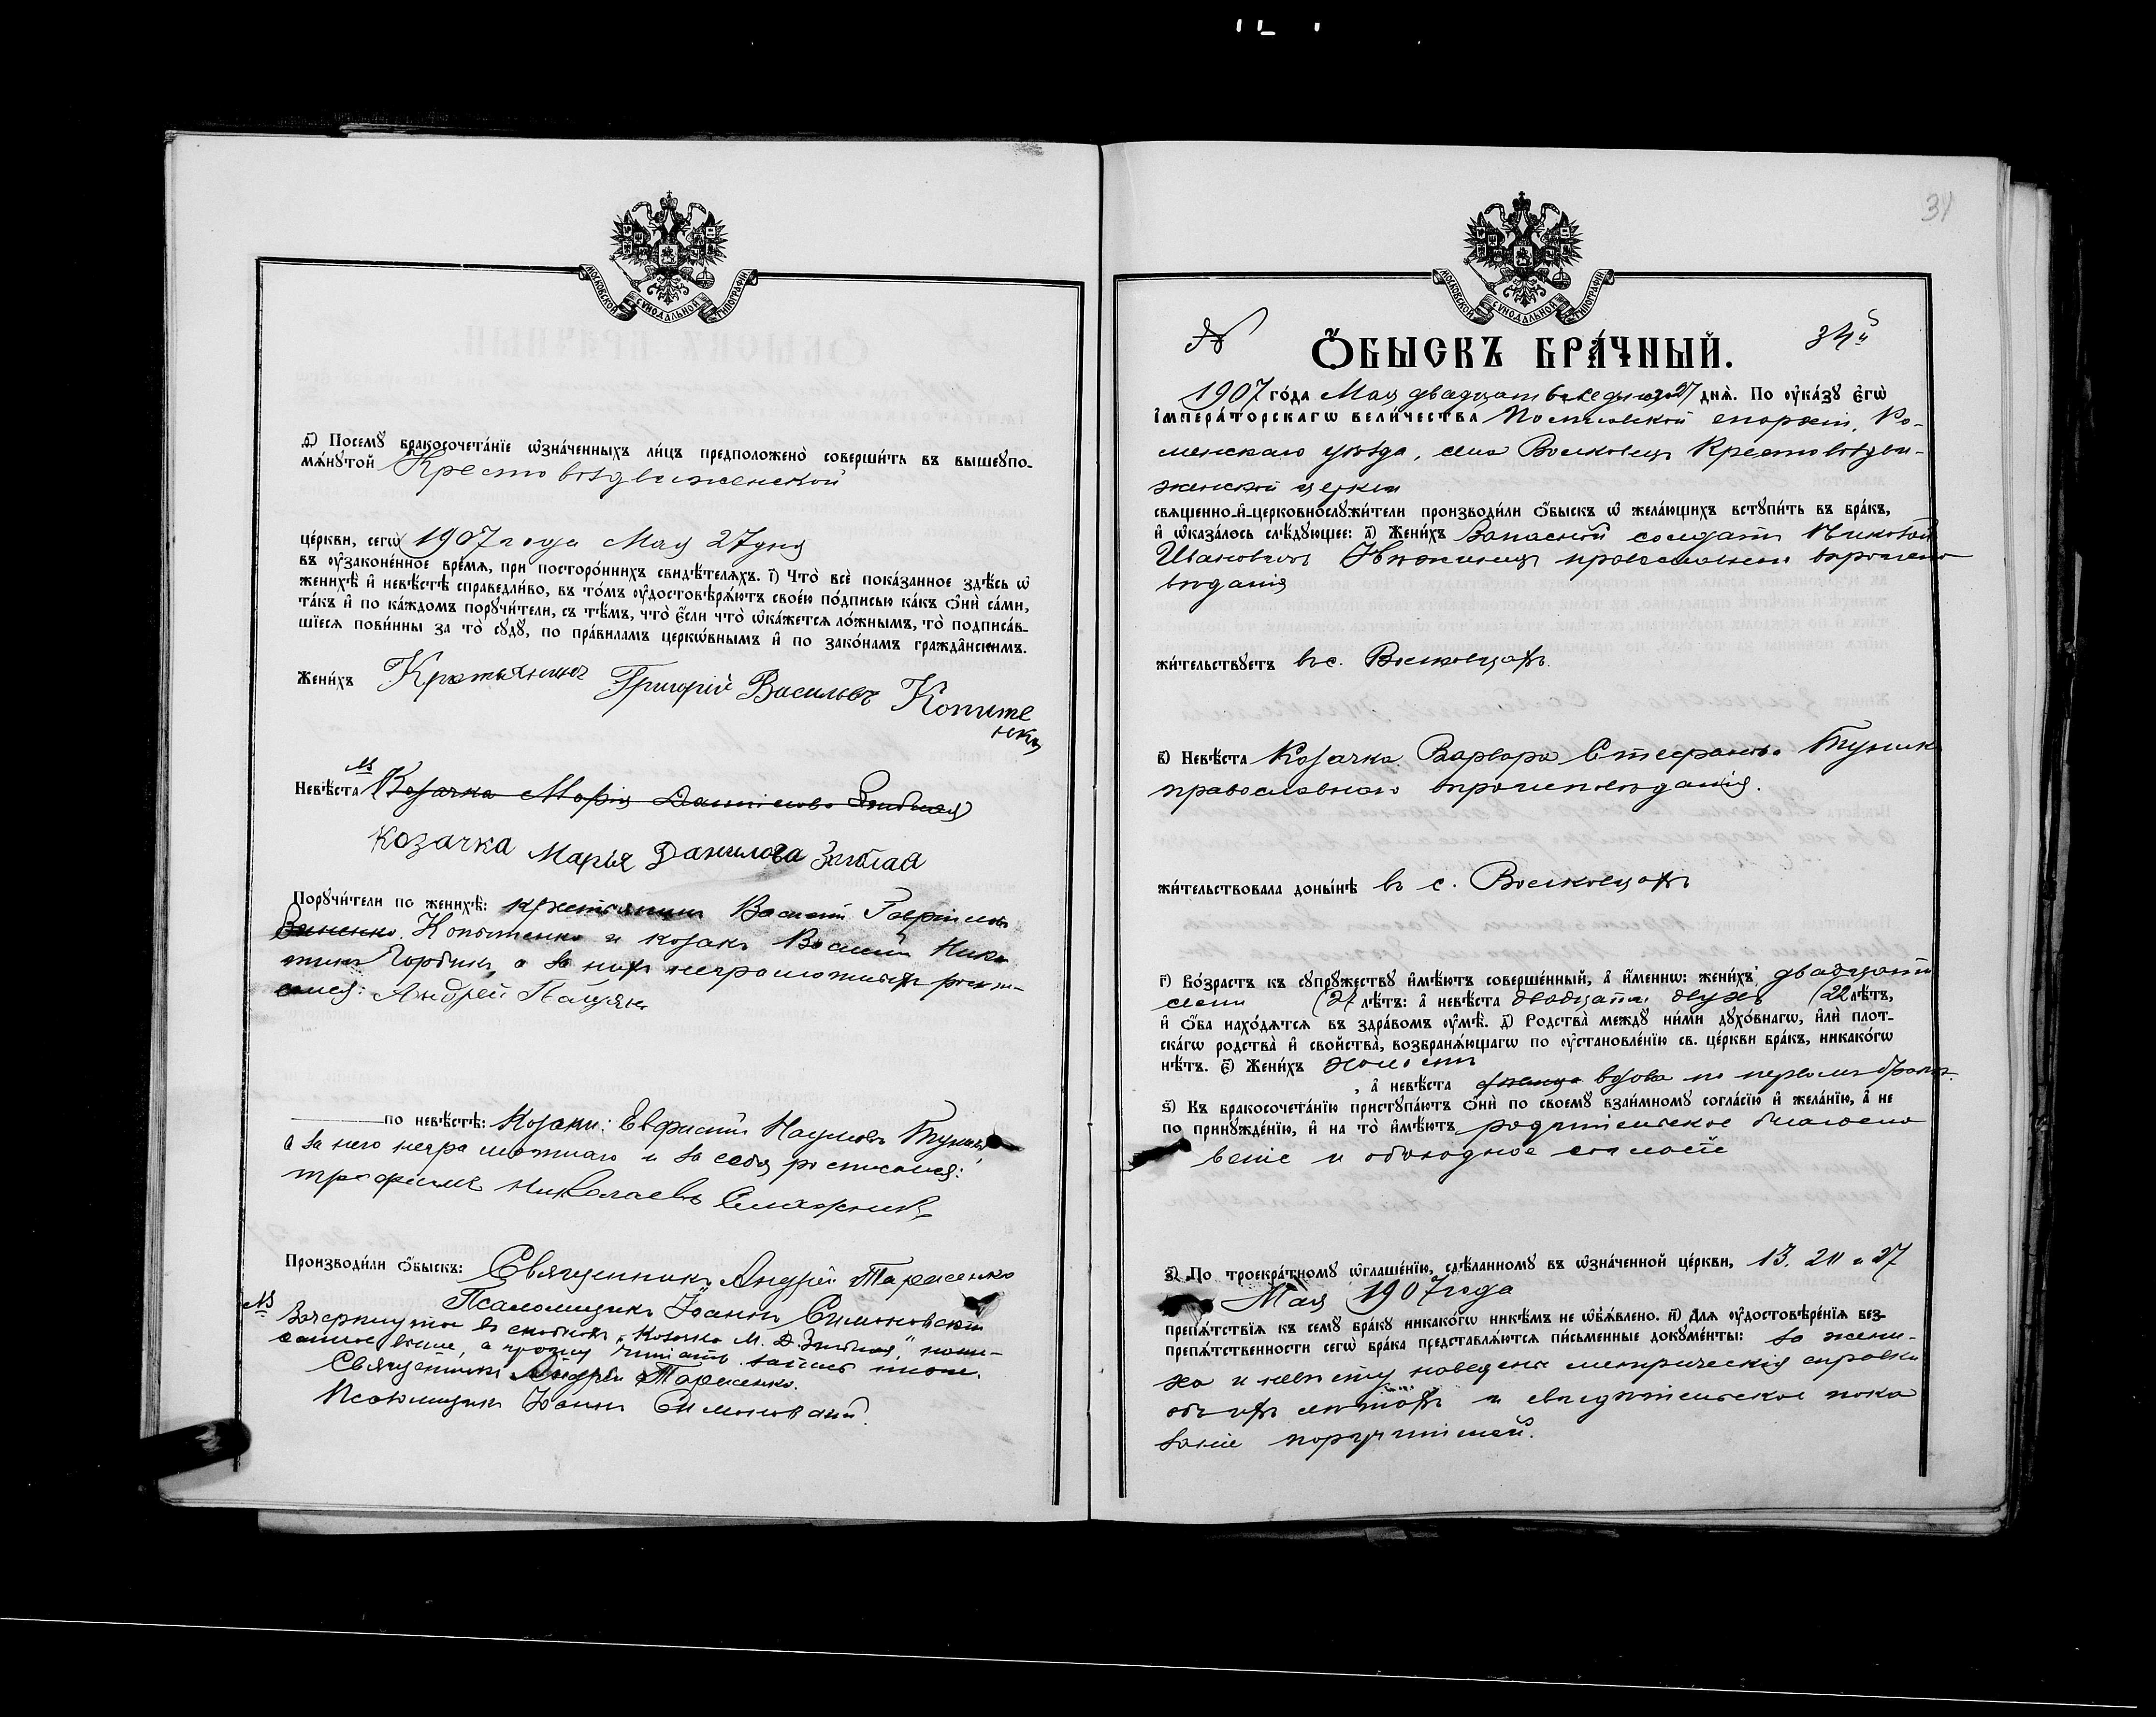 МОСКОВСКОЙ СУНОДАЛЬНОЙ ТИПОГРАФІИ
д҃) Посемꙋ бракосочета́нїе ѡ҆зна́ченныхъ ли́цъ предположено̀ соверши́ть въ вышеꙋпо-
мѧ́нꙋтой Крестовоздвиженской
це́ркви, сегѡ̀ 1907 года Мая 27 дня
въ ᲂу҆зако́ненное вре́мѧ, при посторо́ннихъ свидѣ́телѧхъ. і҃) Что̀ всѐ пока́занное здѣ́сь ѡ҆
женихѣ̀ и҆ невѣ́стѣ справедли́во, въ то́мъ ᲂу҆достовѣрѧ́ютъ свое́ю по́дписью ка́къ ѻ҆нѝ са́ми,
та́къ и҆ по ка́ждомъ порꙋчи́тели, съ тѣ́мъ, что̀ є҆́сли что̀ ѡ҆ка́жетсѧ ло́жнымъ, то̀ подписа́в-
шїесѧ пови́нны за то̀ сꙋдꙋ̀, по пра́виламъ церкѡ́внымъ и҆ по зако́намъ гражда̑нскимъ.
Жени́хъ Крѣстьянинъ Григорій Васильевъ Копите
нко
Невѣ́ста (Козачка Марія Даніилова Зиблая)
козачка Марья Данилова Зиблая
Порꙋчи́тели по женихѣ̀: крестьянинъ Василій Гавріиловъ
Копытенко и козакъ Василій Ники
тинъ Горбикъ, а за нихъ неграмотныхъ роспи-
сался: Андрей Пацуян
по невѣ́стѣ: Козаки: Евфимій Наумовъ Тупикъ,
а за него неграмотнаго и за себя росписался:
трофимъ николаевъ Смажник
Производи́ли ѻ҆́быскъ: Священникъ Андрей Тарасенко
Псаломщикъ Іоаннъ Симоновскій
Зачеркнутое въ скобкахъ „Козачка М. Д. Зиблая," напи-
санное выше, а прошу читать запись ниже.
Священникъ Андрей Тарасенко.
Псаломщикъ Іоаннъ Симоновскій.
31
МОСКОВСКОЙ СУНОДАЛЬНОЙ ТИПОГРАФІИ
№ 34й
Ѻ҆́БЫСКЪ БРА́ЧНЫЙ.
1907 го́да Мая двадцать седьмого 27 днѧ̀. По ᲂу҆ка́зꙋ є҆гѡ̀
і҆мпера́торскагѡ вели́чества Полтавской епархіи, Ро-
менскаго уѣзда, села Волковецъ Крестовоздви-
женской церкви
свѧще́нно-и҆-церковнослꙋжи́тели производи́ли ѻ҆́быскъ ѡ҆ жела́ющихъ встꙋпи́ть въ бра́къ,
и҆ ѡ҆каза́лось слѣ́дꙋющее: а҃) Жени́хъ Запасной солдатъ Николай
Ивановичъ православнаго вѣроиспо
вѣданія
жи́тельствꙋетъ въ с. Волковцахъ.
в҃) Невѣ́ста Козачка Варвара Стефанова Тупикъ
православнаго вѣроисповѣданія.
жи́тельствовала доны́нѣ въ с. Волковцахъ
г҃) Во́зрастъ къ сꙋпрꙋ́жествꙋ и҆мѣ́ютъ соверше́нный, а҆ и҆́меннѡ: жени́хъ двадцати
семи (27 лѣ́тъ: а҆ невѣ́ста двадцати двухъ (22 лѣ́тъ,
и҆ ѻ҆́ба нахо́дѧтсѧ въ здра́вомъ ᲂу҆мѣ̀. д҃) Родства̀ междꙋ̀ ни́ми дꙋхо́внагѡ, и҆лѝ плот-
ска́гѡ родства̀ и҆ сво́йства, возбранѧ́ющагѡ по ᲂу҆становле́нїю св. це́ркви бра́къ, никако́гѡ
нѣ́тъ. є҃) Жени́хъ холостъ
, а҆ невѣ́ста вдова по первомъ бракѣ.
ѕ҃) Къ бракосочета́нїю пристꙋпа́ютъ ѻ҆нѝ по своемꙋ̀ взаи́мномꙋ согла́сїю и҆ жела́нїю, а҆ не
по принꙋжде́нїю, и҆ на то̀ и҆мѣ́ютъ родительское благосло
веніе и обоюдное согласіе
з҃) По троекра́тномꙋ ѡ҆глаше́нїю, сдѣ́ланномꙋ въ ѡ҆зна́ченной це́ркви, 13. 20 и 27
Мая 1907 года
препѧ́тствїѧ къ семꙋ̀ бра́кꙋ никако́гѡ никѣ́мъ не ѡ҆б̾ѧ́влено. и҃) Для ᲂу҆достовѣре́нїѧ без-
препѧ́тственности сегѡ̀ бра́ка представлѧ́ютсѧ пи́сьменные докꙋме́нты: за жени-
ха и невѣсту наведены метрическія справки
объ ихъ лѣтахъ и свидѣтельское пока
заніе поручителей.